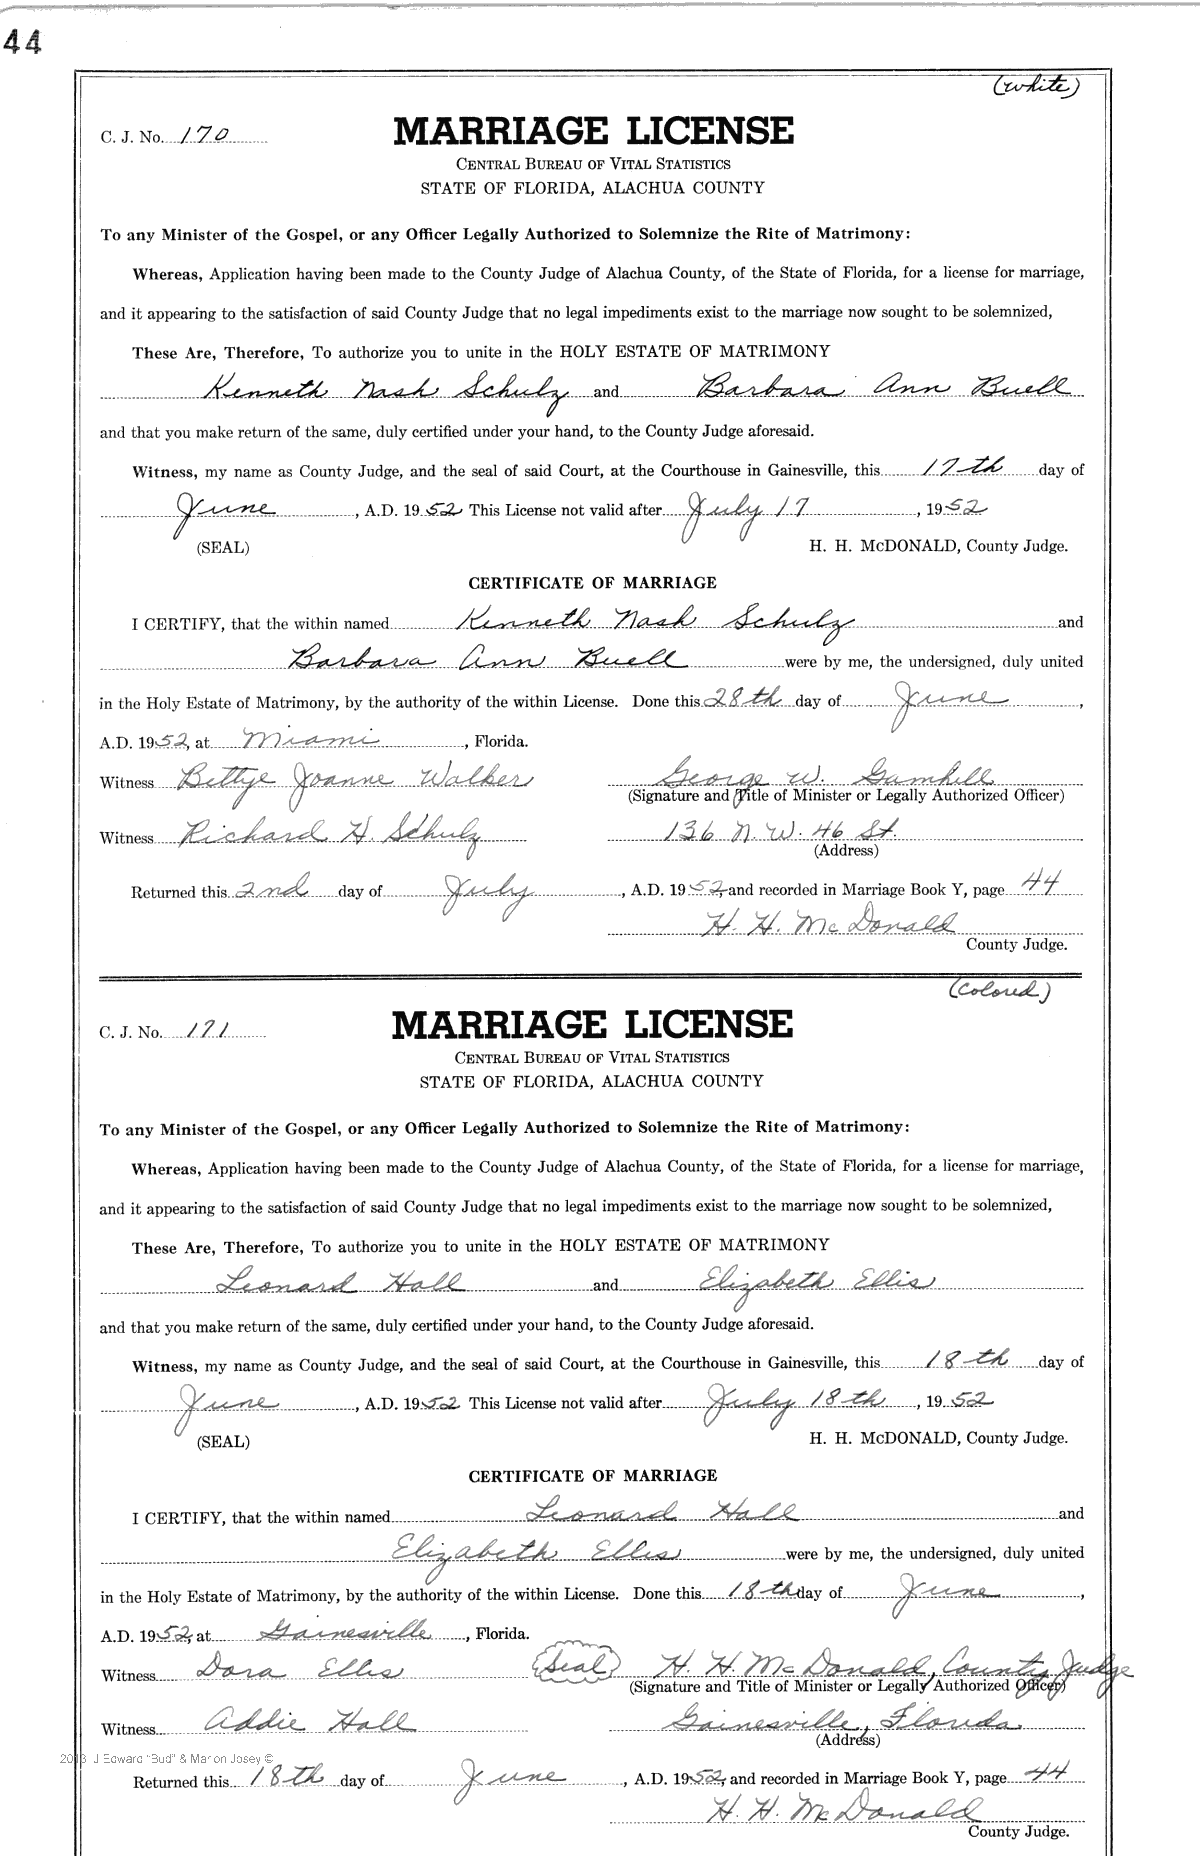 44
(white)
C. J. No. 170
MARRIAGE LICENSE
CENTRAL BUREAU OF VITAL STATISTICS
STATE OF FLORIDA, ALACHUA COUNTY
To any Minister of the Gospel, or any Officer Legally Authorized to Solemnize the Rite of Matrimony:
Whereas, Application having been made to the County Judge of Alachua County, of the State of Florida, for a license for marriage,
and it appearing to the satisfaction of said County Judge that no legal impediments exist to the marriage now sought to be solemnized,
These Are, Therefore, To authorize you to unite in the HOLY ESTATE OF MATRIMONY
Kenneth Nash Schulz and Barbara Ann Buell
and that you make return of the same, duly certified under your hand, to the County Judge aforesaid.
Witness, my name as County Judge, and the seal of said Court, at the Courthouse in Gainesville, this 17th day of
June, A.D. 1952 This License not valid after July 17, 1952
(SEAL) H. H. McDONALD, County Judge.
CERTIFICATE OF MARRIAGE
I CERTIFY, that the within named Kenneth Nash Schulz and
Barbara Ann Buell were by me, the undersigned, duly united
in the Holy Estate of Matrimony, by the authority of the within License. Done this 28th day of June,
A.D. 1952, at Miami, Florida.
Witness Bettye Joanne Walker George W. Gamhill
(Signature and Title of Minister or Legally Authorized Officer)
Witness Richard H. Schulz 136 N. W. 46 St.
(Address)
Returned this 2nd day of July, A.D. 1952, and recorded in Marriage Book Y, page 44
H. H. McDonald
County Judge.
(Colored)
C. J. No. 171
MARRIAGE LICENSE
CENTRAL BUREAU OF VITAL STATISTICS
STATE OF FLORIDA, ALACHUA COUNTY
To any Minister of the Gospel, or any Officer Legally Authorized to Solemnize the Rite of Matrimony:
Whereas, Application having been made to the County Judge of Alachua County, of the State of Florida, for a license for marriage,
and it appearing to the satisfaction of said County Judge that no legal impediments exist to the marriage now sought to be solemnized,
These Are, Therefore, To authorize you to unite in the HOLY ESTATE OF MATRIMONY
Leonard Hall and Elizabeth Ellis
and that you make return of the same, duly certified under your hand, to the County Judge aforesaid.
Witness, my name as County Judge, and the seal of said Court, at the Courthouse in Gainesville, this 18th day of
June, A.D. 1952 This License not valid after July 18th, 1952
(SEAL) H. H. McDONALD, County Judge.
CERTIFICATE OF MARRIAGE
I CERTIFY, that the within named Leonard Hall and
Elizabeth Ellis were by me, the undersigned, duly united
in the Holy Estate of Matrimony, by the authority of the within License. Done this 18th day of June,
A.D. 1952, at Gainesville, Florida.
Witness Dora Ellis (Seal) H. H. McDonald, County Judge
(Signature and Title of Minister or Legally Authorized Officer)
Witness Addie Hall Gainesville, Florida
(Address)
2013 J Edward "Bud" & Marion Josey ©
Returned this 18th day of June, A.D. 1952, and recorded in Marriage Book Y, page 44
H. H. McDonald
County Judge.